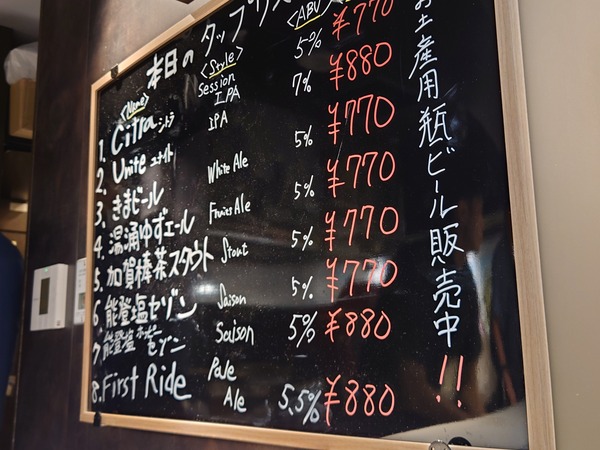 本日のタップリス
<Name> <Style> <ABV>
1. Citra シトラ Session IPA 5% ¥770
2. Unite ユナイト IPA 7% ¥880
3. きまビール White Ale 5% ¥770
4. 湯涌ゆずエール Fruits Ale 5% ¥770
5. 加賀棒茶スタウト Stout 5% ¥770
6 能登塩セゾン Saison 5% ¥770
7. 能登塩ホッピーセゾン Saison 5% ¥880
8. First Ride Pale Ale 5.5% ¥880
お土産用瓶ビール販売中!!